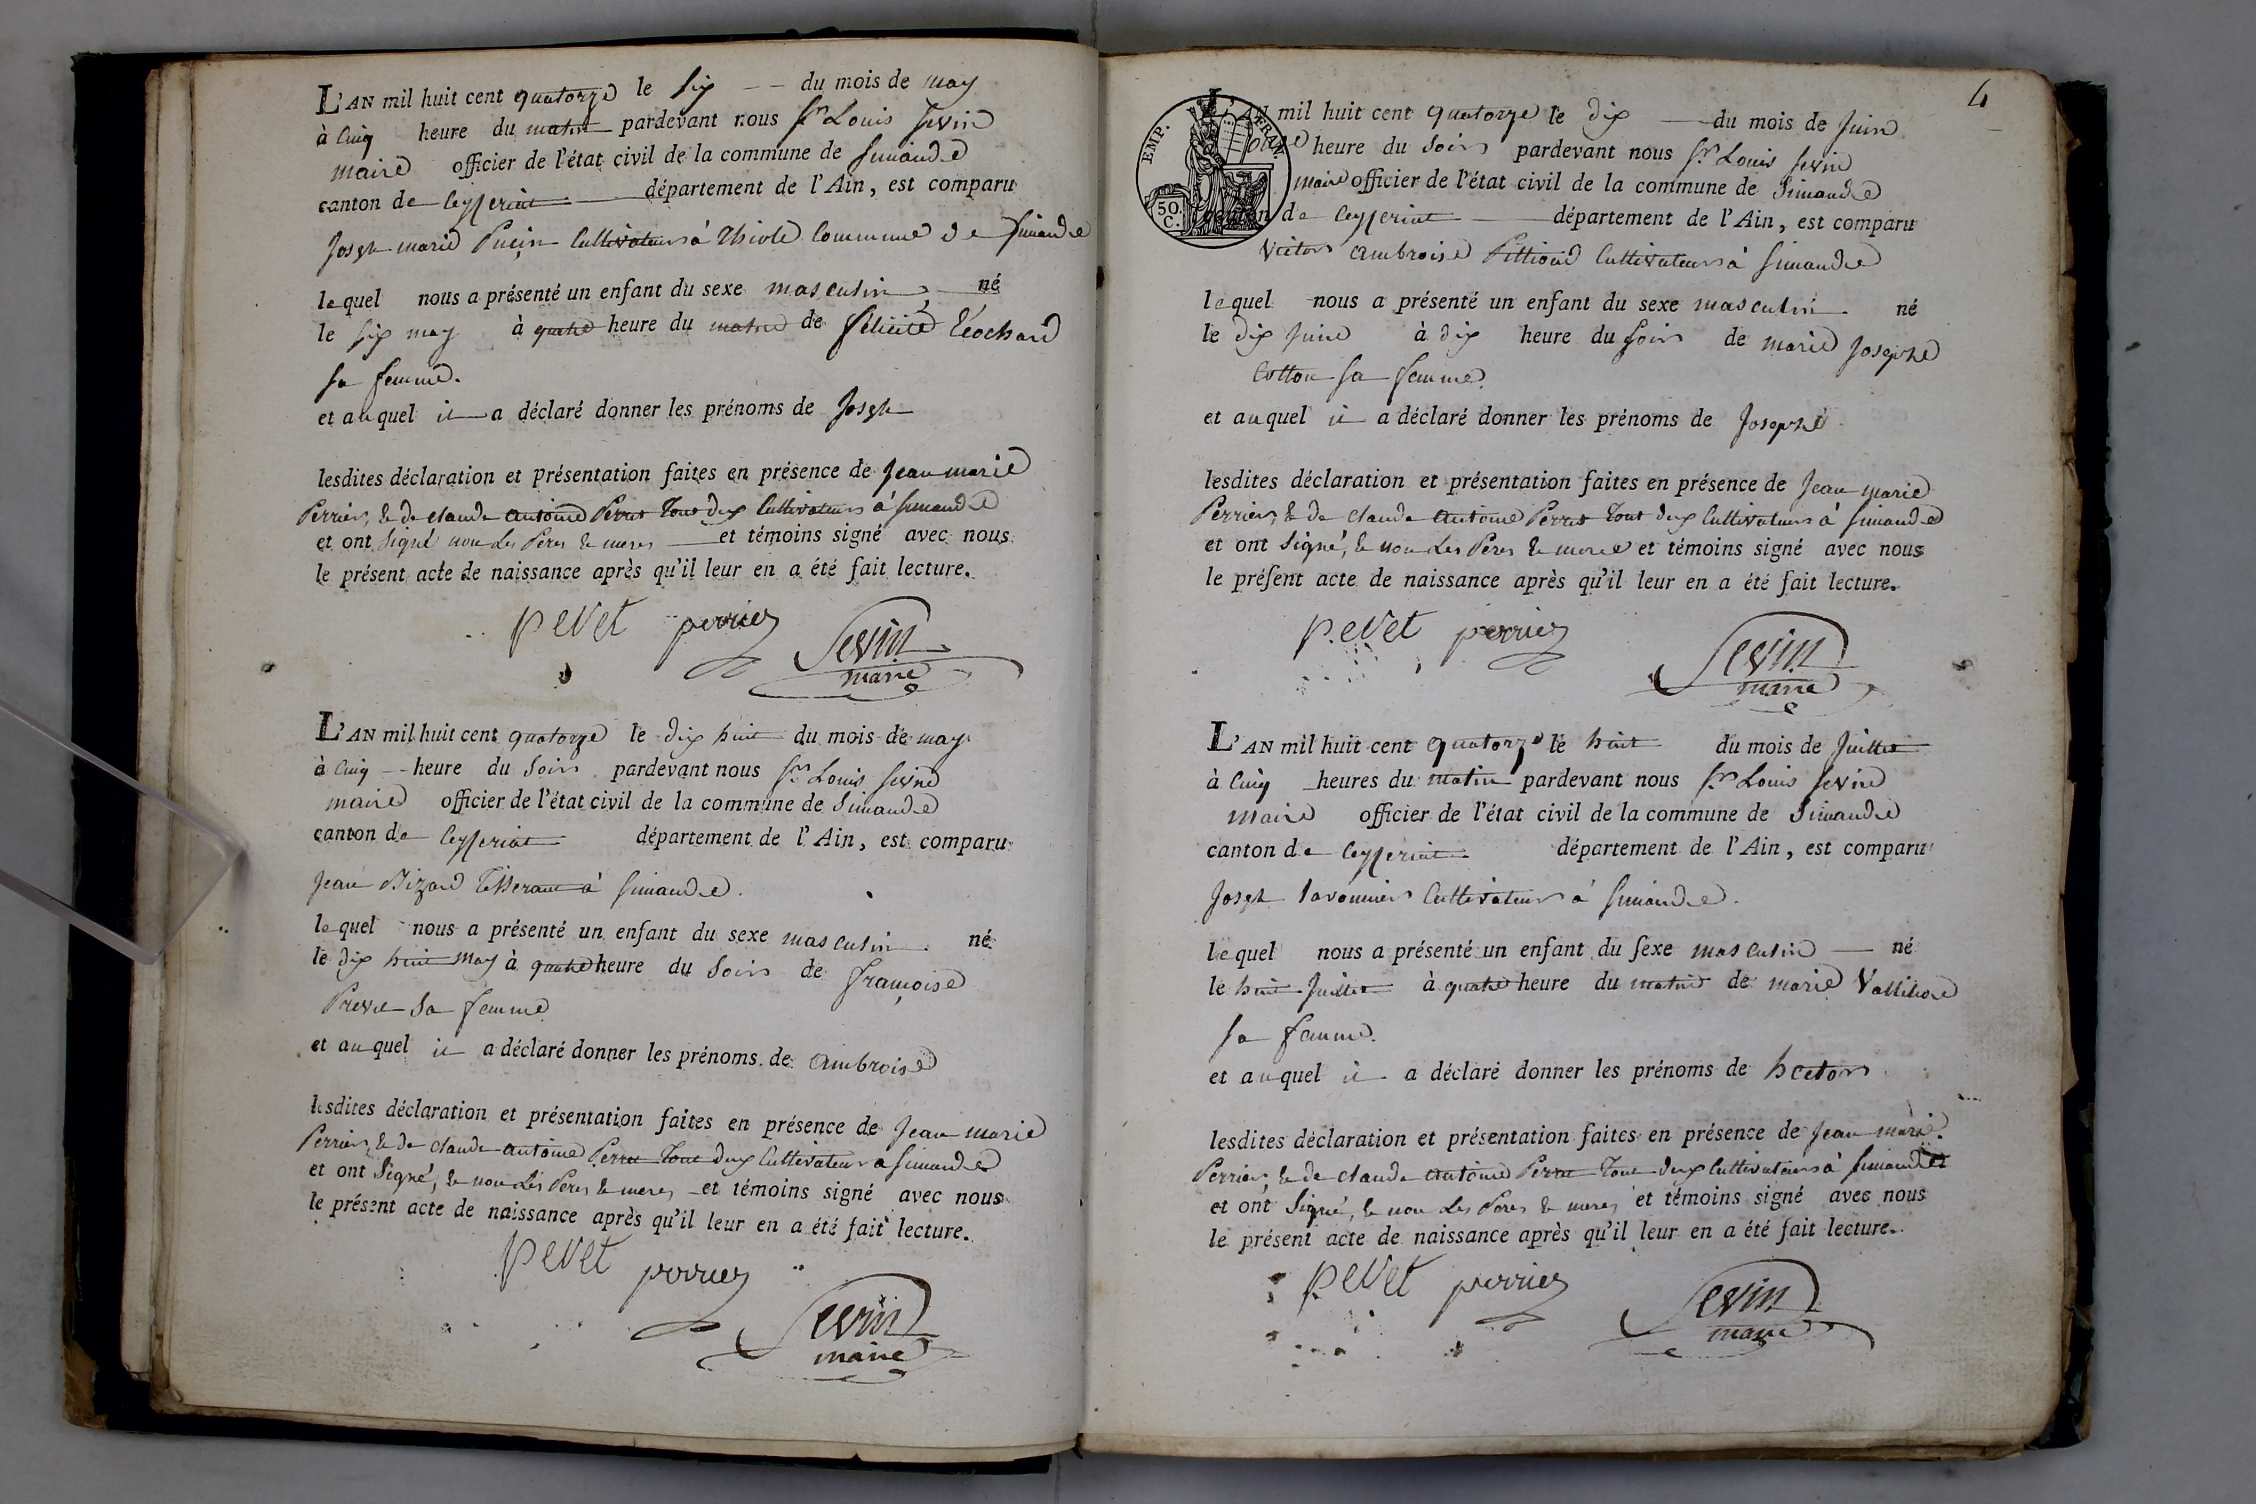 L'AN mil huit cent quatorze le six du mois de may
à Cinq heure du matin pardevant nous Sr Louis Sevin
maire officier de l'état civil de la commune de Simandre
canton de Ceyseriat département de l'Ain, est comparu
Joseph marie Cultivateur à Thiole Commune de Simandre
lequel nous a présenté un enfant du sexe masculin, né
le six may à quatre heure du matin de félicité
sa femme.
et auquel il a déclaré donner les prénoms de Joseph
lesdites déclaration et présentation faites en présence de Jean marie
Perrier, & de claude antoine Perret Tout deux Cultivateurs à Simandre
et ont Signé non Les Peres & meres et témoins signé avec nous
le présent acte de naissance après qu'il leur en a été fait lecture.
pevet perrier Sevin
maire
L'AN mil huit cent quatorze le dix huit du mois de may
à Cinq heure du Soir pardevant nous Sr Louis Sevin
maire officier de l'état civil de la commune de Simandre
canton de Ceyseriat département de l'Ain, est comparu
Jean Bizard Tisserant à Simandre.
lequel nous a présenté un enfant du sexe masculin. né
le dix huit may à quatre heure du Soir de françoise
Prevet Sa femme
et auquel il a déclaré donner les prénoms de ambroise
lesdites déclaration et présentation faites en présence de Jean marie
Perrier, & de claude antoine Perret Tout deux Cultivateurs à Simandre
et ont Signé, & non Les Peres & meres et témoins signé avec nous
le présent acte de naissance après qu'il leur en a été fait lecture.
pevet perrier
Sevin
maire
4
EMP. FRAN.
50 C.
L'AN mil huit cent quatorze le dix du mois de Juin
onze heure du Soir pardevant nous Sr Louis Sevin
maire officier de l'état civil de la commune de Simandre
canton de Ceyseriat département de l'Ain, est comparu
Victor ambroise Pittion Cultivateur à Simandre
lequel nous a présenté un enfant du sexe masculin né
le dix Juin à dix heure du Soir de marie Josephe
Cotton sa femme.
et auquel il a déclaré donner les prénoms de Josephe
lesdites déclaration et présentation faites en présence de Jean marie
Perrier, & de claude antoine Perret Tout deux Cultivateurs à Simandre
et ont Signé, & non Les Peres & mere et témoins signé avec nous
le présent acte de naissance après qu'il leur en a été fait lecture.
pevet perrier Sevin
maire
L'AN mil huit cent quatorze le huit du mois de Juillet
à Cinq heures du matin pardevant nous Sr Louis Sevin
maire officier de l'état civil de la commune de Simandre
canton de Ceyseriat département de l'Ain, est comparu
Joseph Cultivateur à Simandre.
lequel nous a présenté un enfant du sexe masculin né
le huit Juillet à quatre heure du matin de marie
sa femme.
et auquel il a déclaré donner les prénoms de hector
lesdites déclaration et présentation faites en présence de Jean marie
Perrier, & de claude antoine Perret Tout deux Cultivateurs à Simandre
et ont Signé, & non Les Peres & meres et témoins signé avec nous
le présent acte de naissance après qu'il leur en a été fait lecture.
pevet perrier Sevin
maire